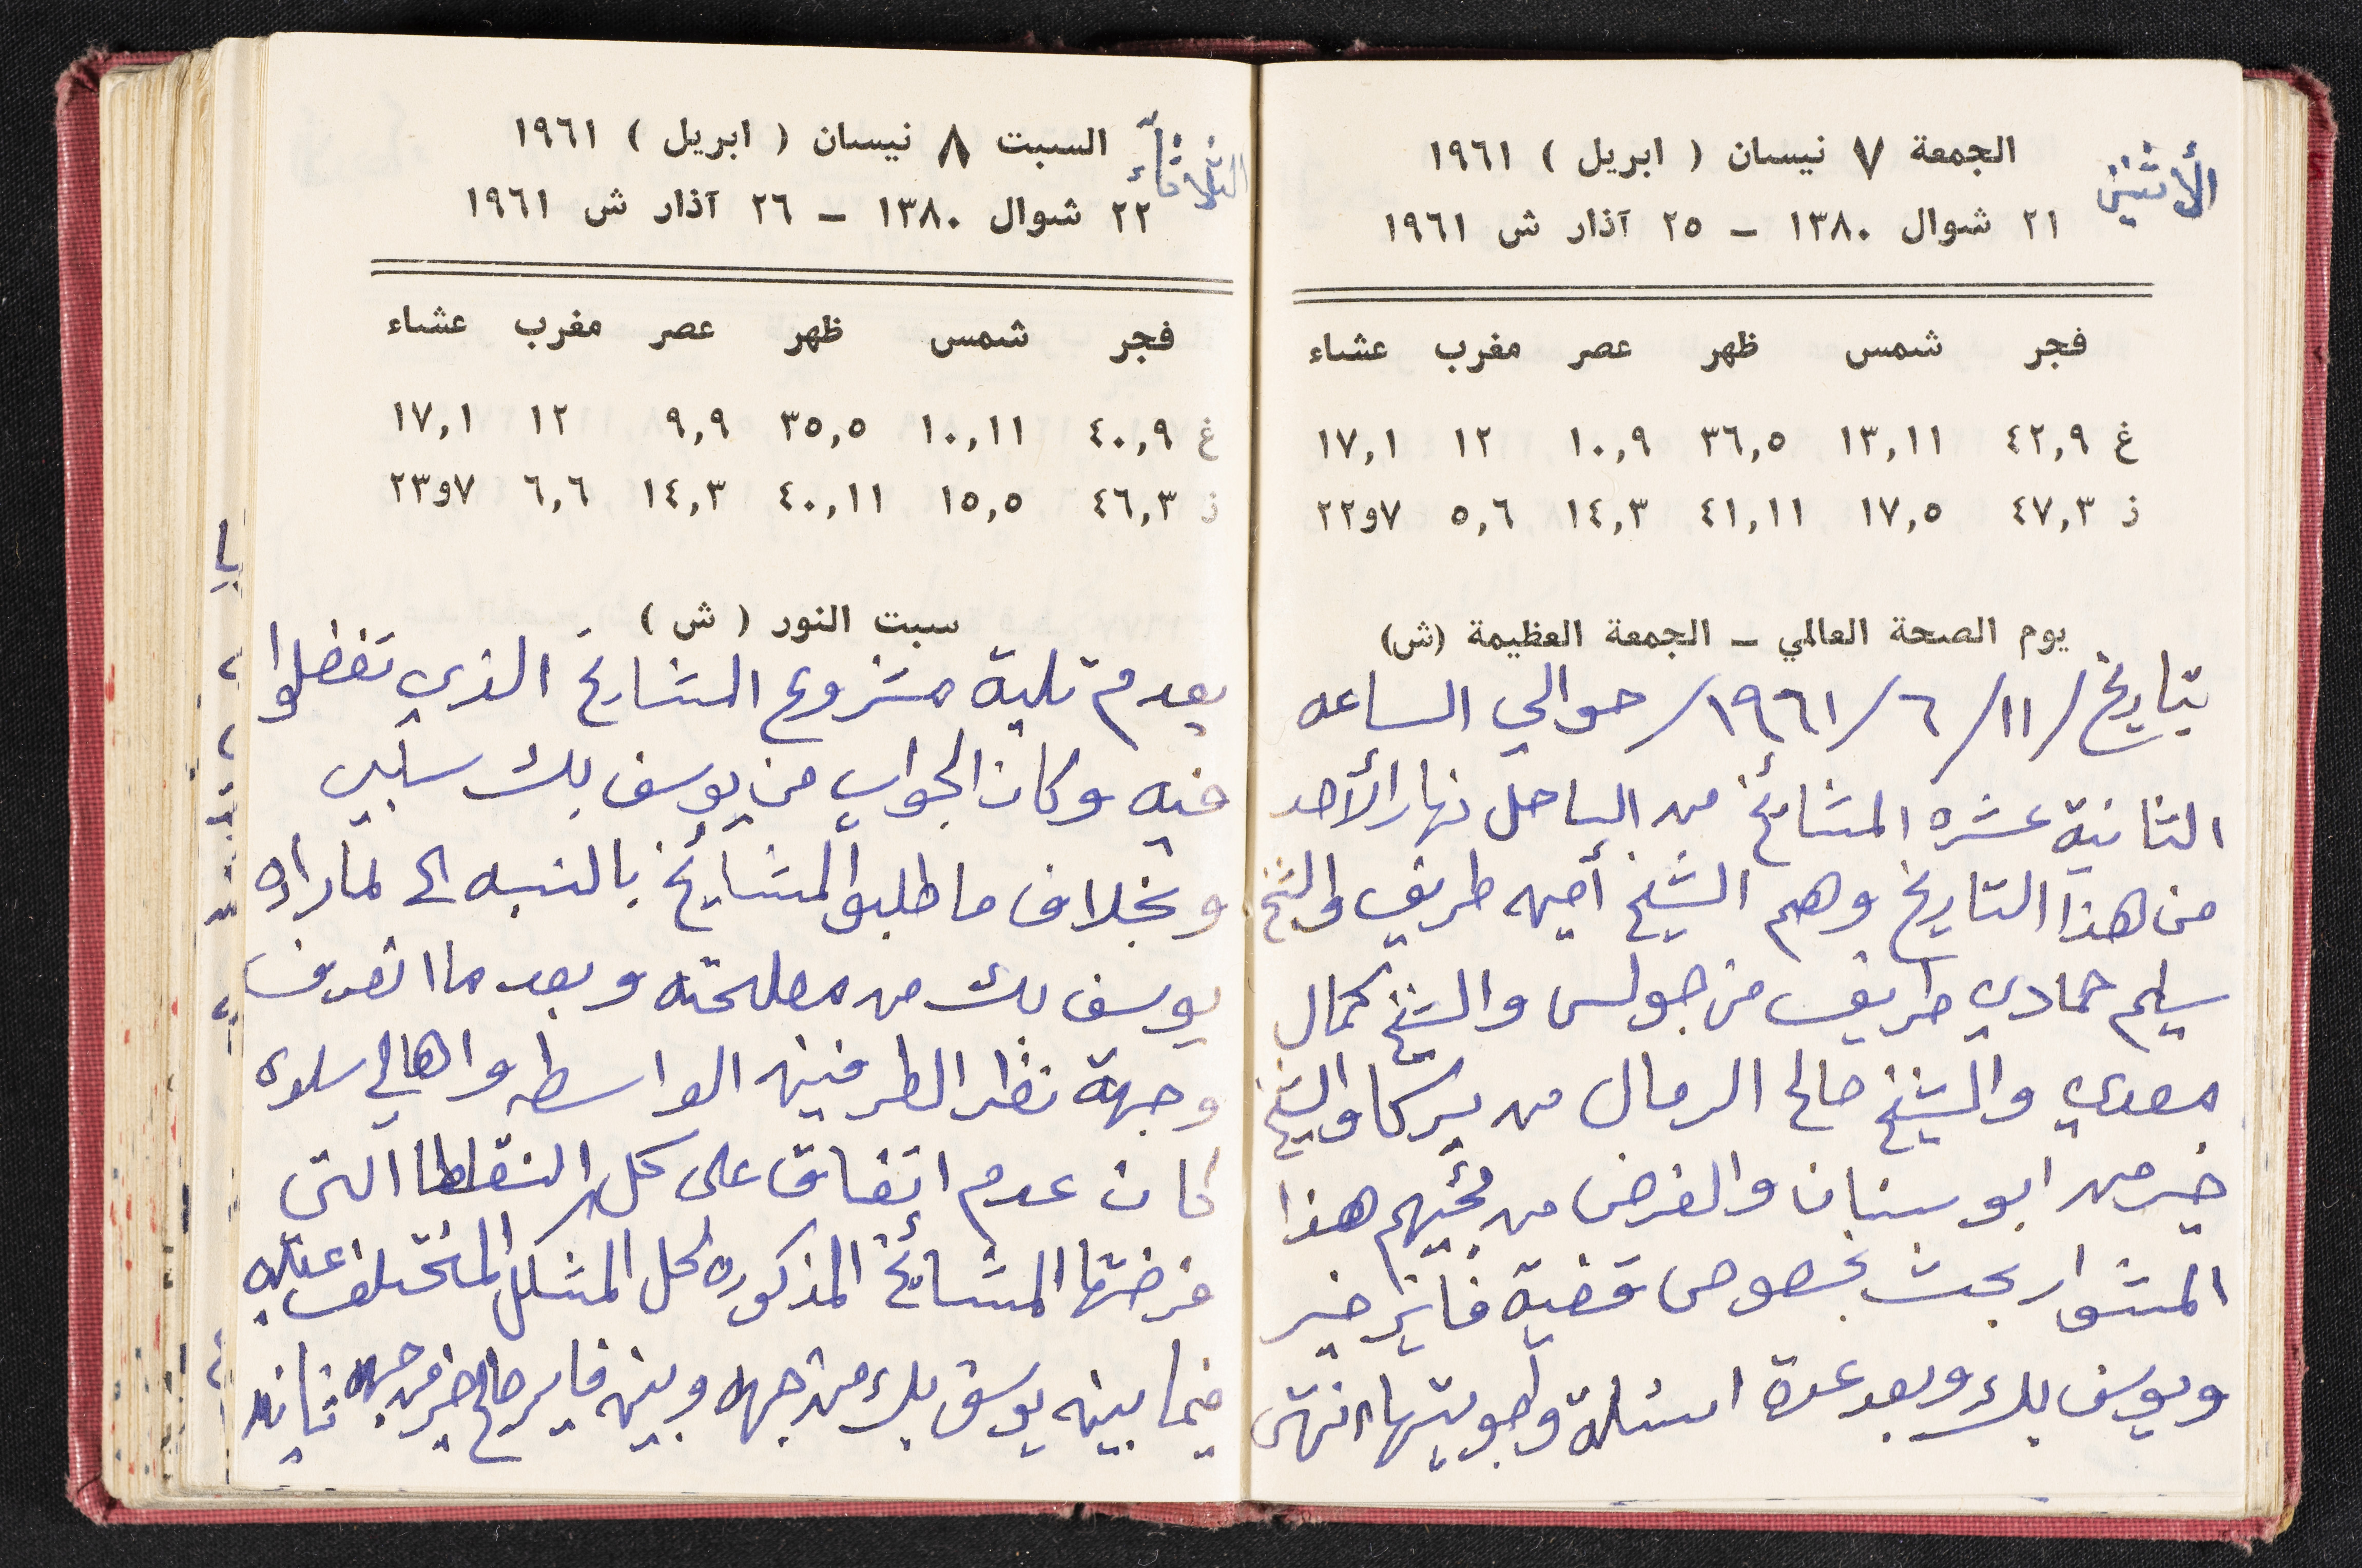 الأثنين
الجمعة ٧ نيسان ( ابريل ) ١٩٦١
٢١ شوال ١٣٨٠ – ٢٥ آذار ش ١٩٦١
فجر شمس ظهر عصر مغرب عشاء
غ ٤٢,٩ ١٣,١١ ٣٦,٥ ١٠,٩ ١٢ ١٧,١
ز ٤٧,٣ ١٧,٥ ٤١,١١ ١٤,٣ ٥,٦ ٧و٢٢
يوم الصحة العالمي – الجمعة العظيمة (ش)
بتاريخ /١١/ ٦/ ١٩٦١/ حوالي الساعه
الثانية عشره المشائخ من الساحل نهار الأحد
من هذا التاريخ وهم الشيخ أمين طريف والشيخ
سليم حمادي طريف من جولس والشيخ كمال
معدي والشيخ صالح الرمال من يركا والشيخ
خير من ابو سنان والغرض من مجيئهم هذا
المشوار بحث بخصوص قضية فايز خير
ويوسف بك وبعد عدة اسئلة وأجوبتها انتهى
الثلاثاء
السبت ٨ نيسان ( ابريل ) ١٩٦١
٢٢ شوال ١٣٨٠ – ٢٦ آذار ش ١٩٦١
فجر شمس ظهر عصر مغرب عشاء
غ ٤٠,٩ ١٠,١١ ٣٥,٥ ٩,٩ ١٢ ١٧,١
ز ٤٦,٣ ١٥,٥ ٤٠,١١ ١٤,٣ ٦,٦ ٧و٢٣
سبت النور ( ش )
بعدم تلبة مشروع المشايخ الذي تفضلوا
فيه وكان الجواب من يوسف بك سلبي
وبخلاف ما طلبوا المشايخ بالنسبه الى لما راه
يوسف بك من مصلحته وبعد ما انعرف
وجهة نظر الطرفين الواسطه واهالي
كان عدم اتفاق على كل النقاط التي
فرضتها المشائخ المذكوره لحل المشكل المختلف عليه
فيما بين يوسف بك من جهه وبين فايز صالح خير من جهه ثانيه